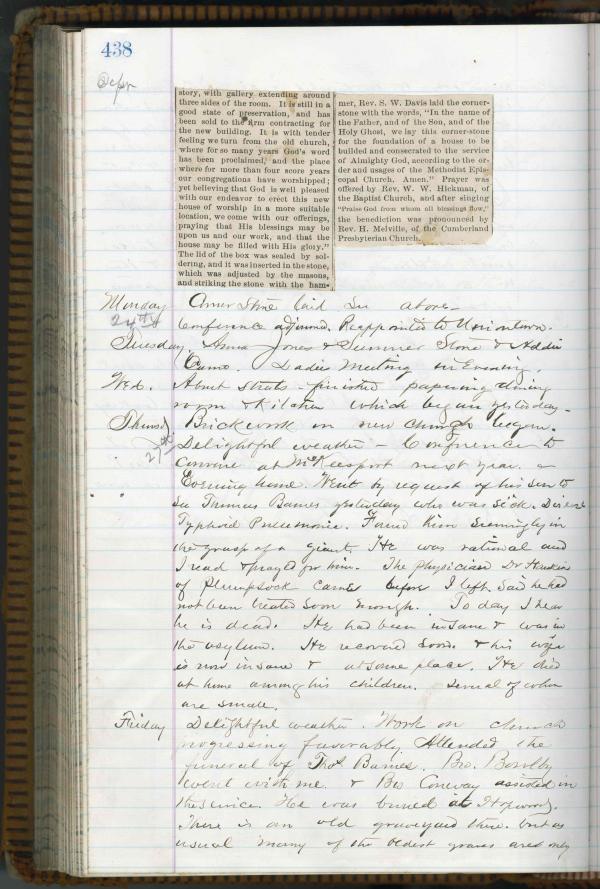 438
story, with gallery extending around
three sides of the room. It is still in a
good state of preservation, and has
been sold to the firm contracting for
the new building. It is with tender
feeling we turn from the old church,
where for so many years God's word
has been proclaimed, and the place
where for more than four score years
our congregations have worshipped;
yet believing that God is well pleased
with our endeavor to erect this new
house of worship in a more suitable
location, we come with our offerings,
praying that His blessings may be
upon us and our work, and that the
house may be filled with His glory."
The lid of the box was sealed by sol-
dering, and it was inserted in the stone,
which was adjusted by the masons,
and striking the stone with the ham-
mer, Rev. S. W. Davis laid the corner-
stone with the words, "In the name of
the Father, and of the Son, and of the
Holy Ghost, we lay this corner-stone
for the foundation of a house to be
builded and consecrated to the service
of Almighty God, according to the or-
der and usages of the Methodist Epis-
copal Church, Amen." Prayer was
offered by Rev. W. W. Hickman, of
the Baptist Church, and after singing
"Praise God from whom all blessings flow,"
the benediction was pronounced by
Rev. H. Melville, of the Cumberland
Presbyterian Church.
Monday Corner Stone laid See above
Conference adjourned. Reappointed to Uniontown.
Tuesday, Anna Jones & Sumner Stone & Addie
Came. Ladies Meeting in Evening.
Wed. About streets - finished papering dining
room & Kitchen which began yesterday -
Thursd Brick work on new church began.
27th Delightful weather - Conference to
convene at McKeesport next year.
Evening home. Went by request of his son to
see Thomas Barnes yesterday who was sick.
Typhoid Pneumonia. Found him seemingly in
the grasp of a Giant. He was rational and
I read & pray'd for him. The physician Dr
of Plumpsock came before I left. Said he had
not been treated soon enough. To day I hear
he is dead. He had been insane & was in
the asylum. He recovered soon. & his wife
is now insane & at same place. He died
at home among his children. Several of whom
are small.
Friday Delightful weather. Work on church
progressing favorably. Attended the
funeral of Thos Barnes. Bro. Bowlby
went with me & Bro Conway assisted in
the service. He was buried at Hopwood.
There is an old graveyard there. but as
usual many of the oldest graves are only